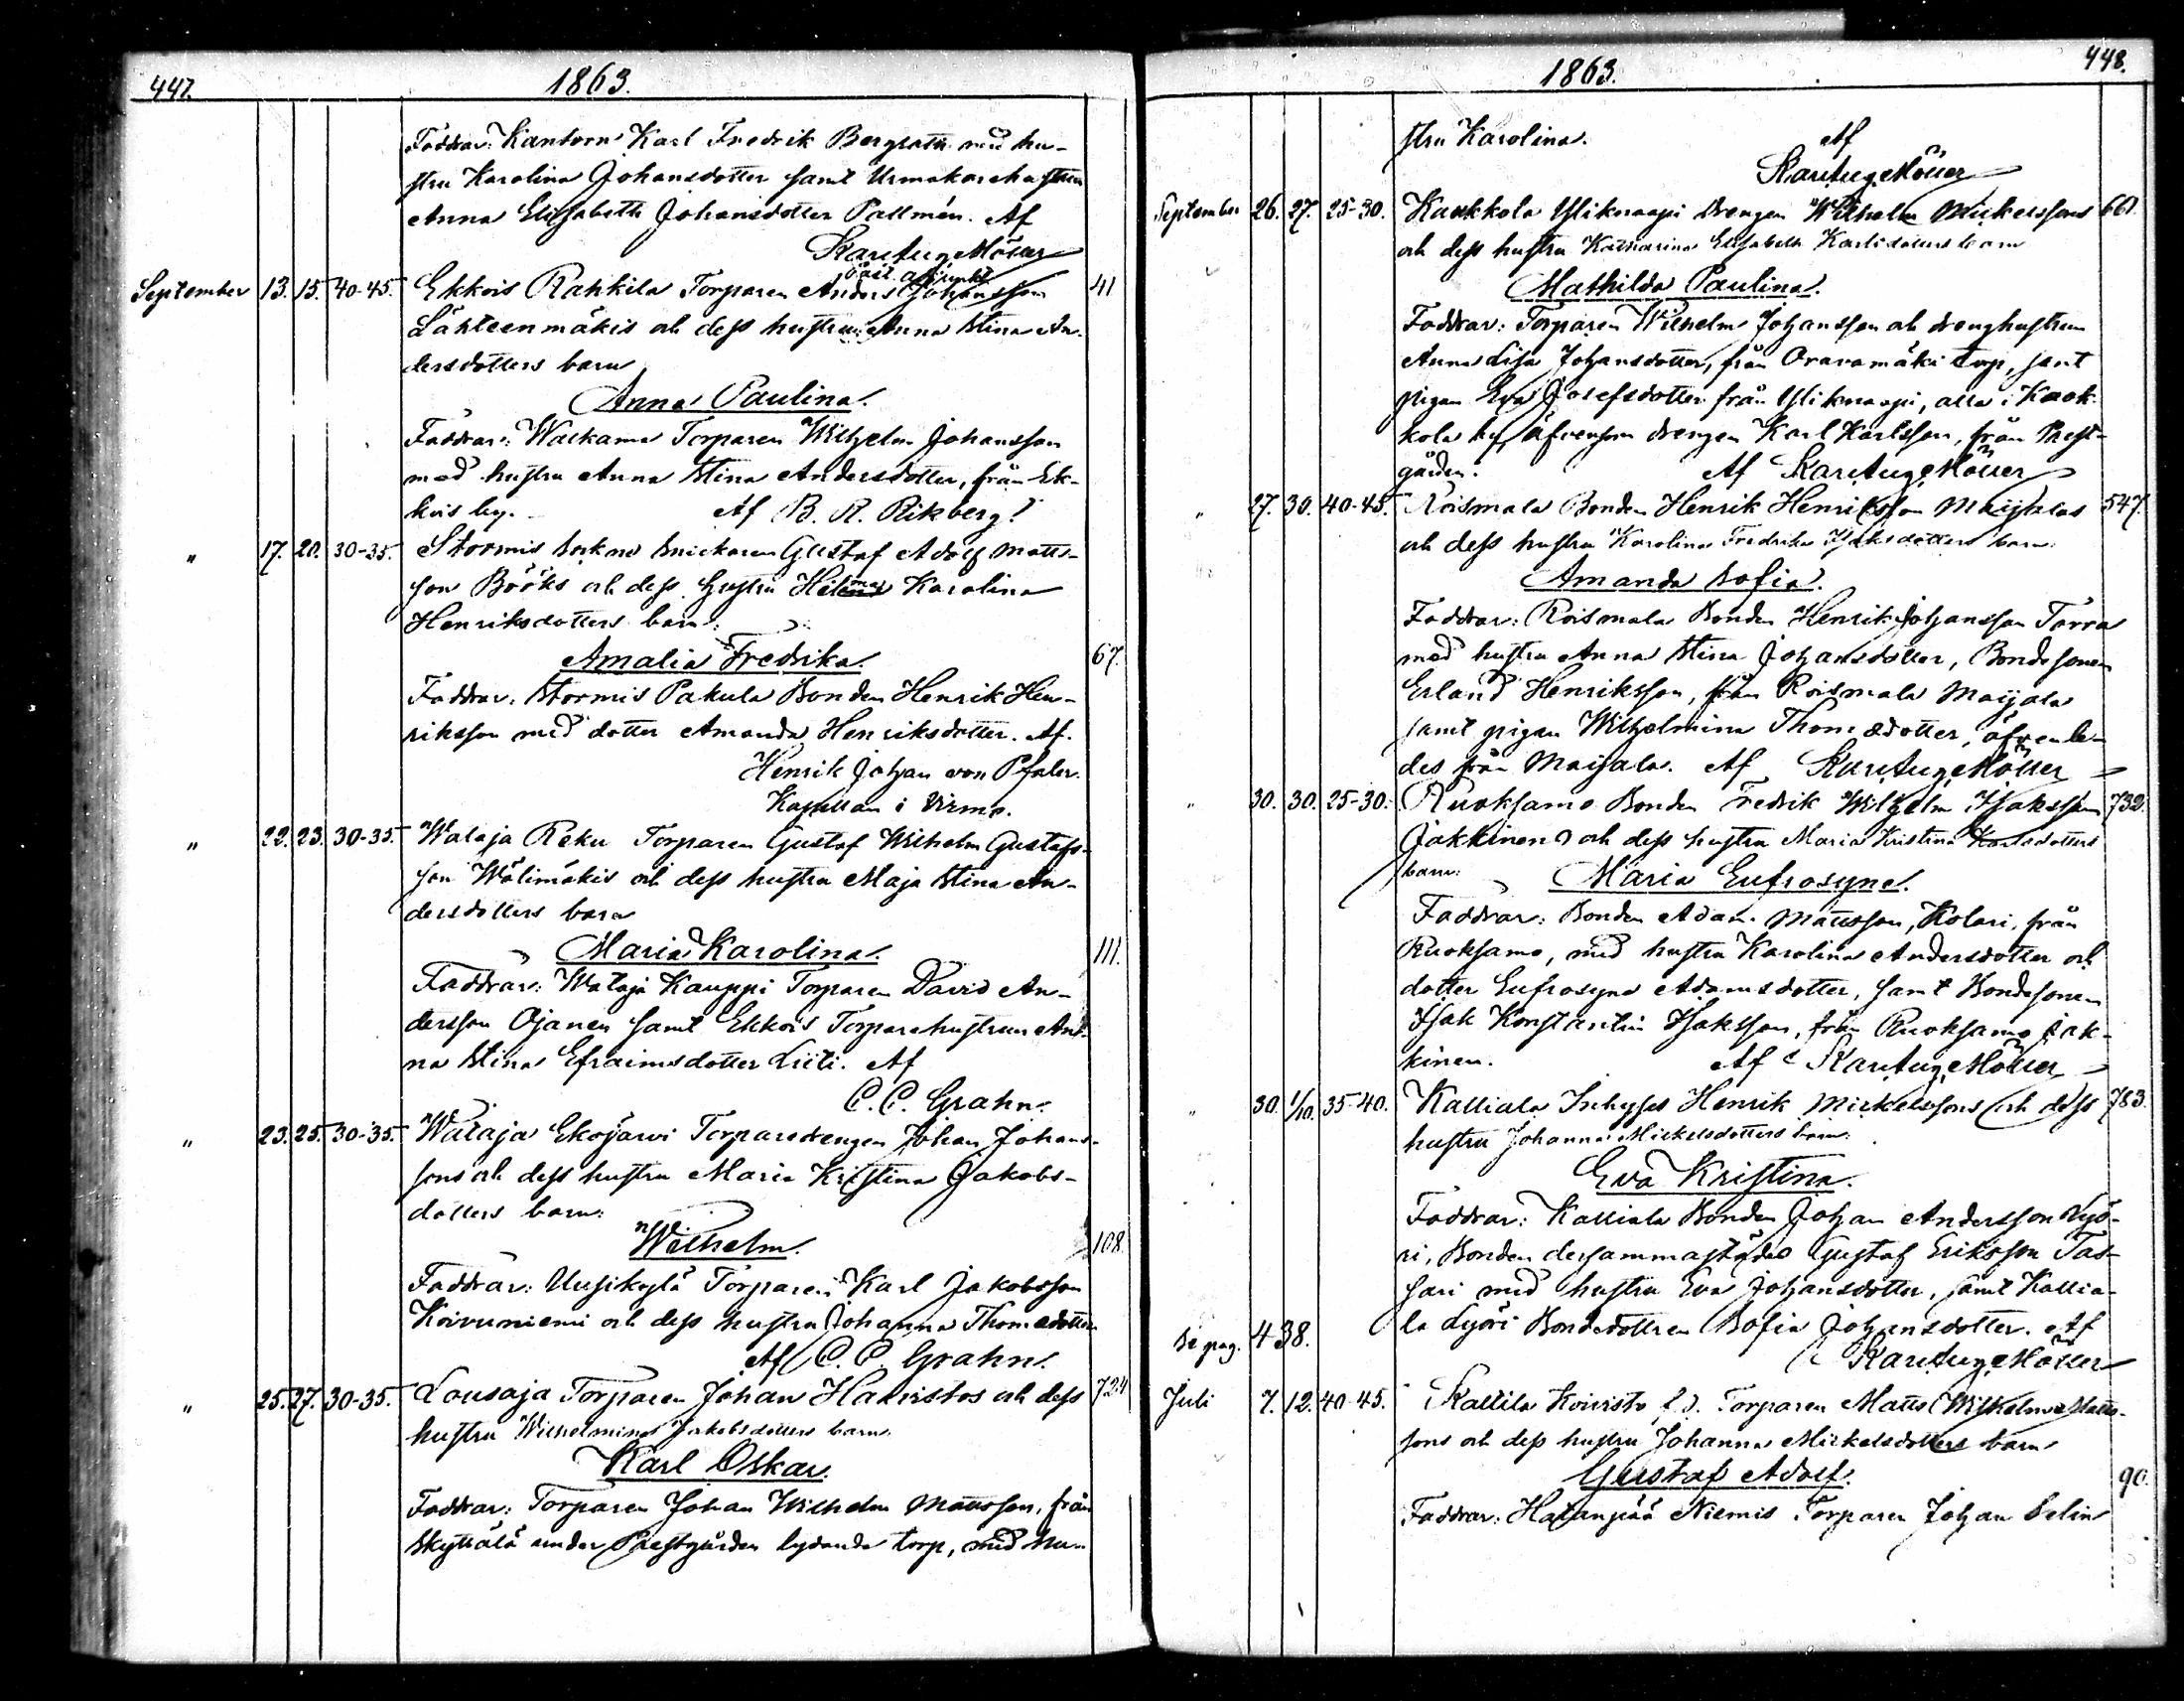 447.
1863.
Faddrar: Kantorn Karl Fredrik Bergroth med hu-
stru Karolina Johansdotter samt Urmakarehustrun
Anna Elisabeth Johansdotter Pallmén. Af
Karl Aug. Möller
Past. adjunkt
September 13. 15. 40-45. Ekkois Rahkila Torparen Anders Johansson 41
Lähteenmäkis och dess hustru Anna Stina An-
dersdotters barn
Anna Paulina.
Faddrar: Torparen Wilhelm Johansson
med hustru Anna Stina Andersdotter, från Ek-
kois by. Af B. R. Rikberg?
" 17. 20. 30-35. Stormis Snickaren Gustaf Adolf Matts-
son Bööks och dess hustru Karolina
Henriksdotters barn:
Amalia Fredrika. 67.
Faddrar: Stormis Pakula Bonden Henrik Hen-
riksson med dotter Amanda Henriksdotter. Af.
Henrik Johan von Pfaler.
Kapellan i Virmo.
" 22. 23. 30-35. Walaja Reku Torparen Gustaf Wilhelm Gustafs-
son Wälimäkis och dess hustru Maja Stina An-
dersdotters barn
Maria Karolina. 111.
Faddrar: Walaja Kauppi Torparen David An-
dersson Ojanen samt Ekkois Torparehustrun An-
na Stina Efraimsdotter Liiti. Af
C. C. Grahn.
" 23. 25. 30-35. Walaja Ekojärvi Torparedrengen Johan Johans-
sons och dess hustru Maria Kristina Jakobs-
dotters barn:
Wilhelm. 108.
Faddrar: Uusikylä Torparen Karl Jakobsson
Koivuniemi och dess hustru Johanna Thomædotter
Af C. C. Grahn.
" 25. 27. 30-35. Lousaja Torparen Johan Haristos och dess 724
hustru Wilhelmina Jakobsdotters barn.
Karl Oskar.
Faddrar: Torparen Johan Wilhelm Mattsson, från
Skyttälä under Prestgården lydande torp, med hu-
448.
1863.
stru Karolina. Af
Karl Aug. Möller
September 26. 27. 25-30. Kaukkola Yliknaapi Drengen Wilhelm Mickelssons 661.
och dess hustru Katharina Elisabeth Karlsdotters barn
Mathilda Paulina.
Faddrar: Torparen Wilhelm Johansson och drenghustrun
Anna Lisa Johansdotter, från Oravamäki torp, samt
pigan Eva Josefsdotter från Yliknaapi, alla i Kauk-
kola by, äfvensom drengen Karl Karlsson, från Prest-
gården. Af Karl Aug. Möller
" 27. 30. 40-45. Roismala Bonden Henrik Henriksson Maijalas 547.
och dess hustru Karolina Fredrika Isaksdotters barn:
Amanda Sofia.
Faddrar: Roismala Bonden Henrik Johansson Torra
med hustru Anna Stina Johansdotter, Bondesonen
Erland Henriksson, från Roismala Maijala
samt pigan Wilhelmina Thomædotter, äfvenle-
des från Maijala. Af Karl Aug. Möller
" 30. 30. 25-30. Ruoksamo Bonden Fredrik Wilhelm Isaksson 732.
Jakkinens och dess hustru Maria Kristina Karlsdotters
barn: Maria Eufrosyne.
Faddrar: Bonden Adam Mattsson, Kolari, från
Ruoksamo, med hustru Karolina Andersdotter och
dotter Eufrosyne Adamsdotter, samt Bondesonen
Isak Konstantin Isaksson, från Ruoksamo Jak-
kinen. Af Karl Aug. Möller
" 30. 1/10. 35-40. Kalliala Inhyses Henrik Mickelssons och dess 783.
hustru Johanna Mickelsdotters barn:
Eva Kristina.
Faddrar: Kalliala Bonden Johan Andersson Lyö-
ri, Bonden dersammastädes Gustaf Eriksson Tas-
sari med hustru Eva Johansdotter, samt Kallia-
la Lyöri Bondedottren Sofia Johansdotter. Af
Karl Aug. Möller
Se pag. 438.
Juli 7. 12. 40-45. Kallila Koivisto f.d. Torparen Matts Wilhelm Matts-
sons och dess hustru Johanna Mickelsdotters barn
Gustaf Adolf. 90.
Faddrar: Hatanpää Niemis Torparen Johan Selin